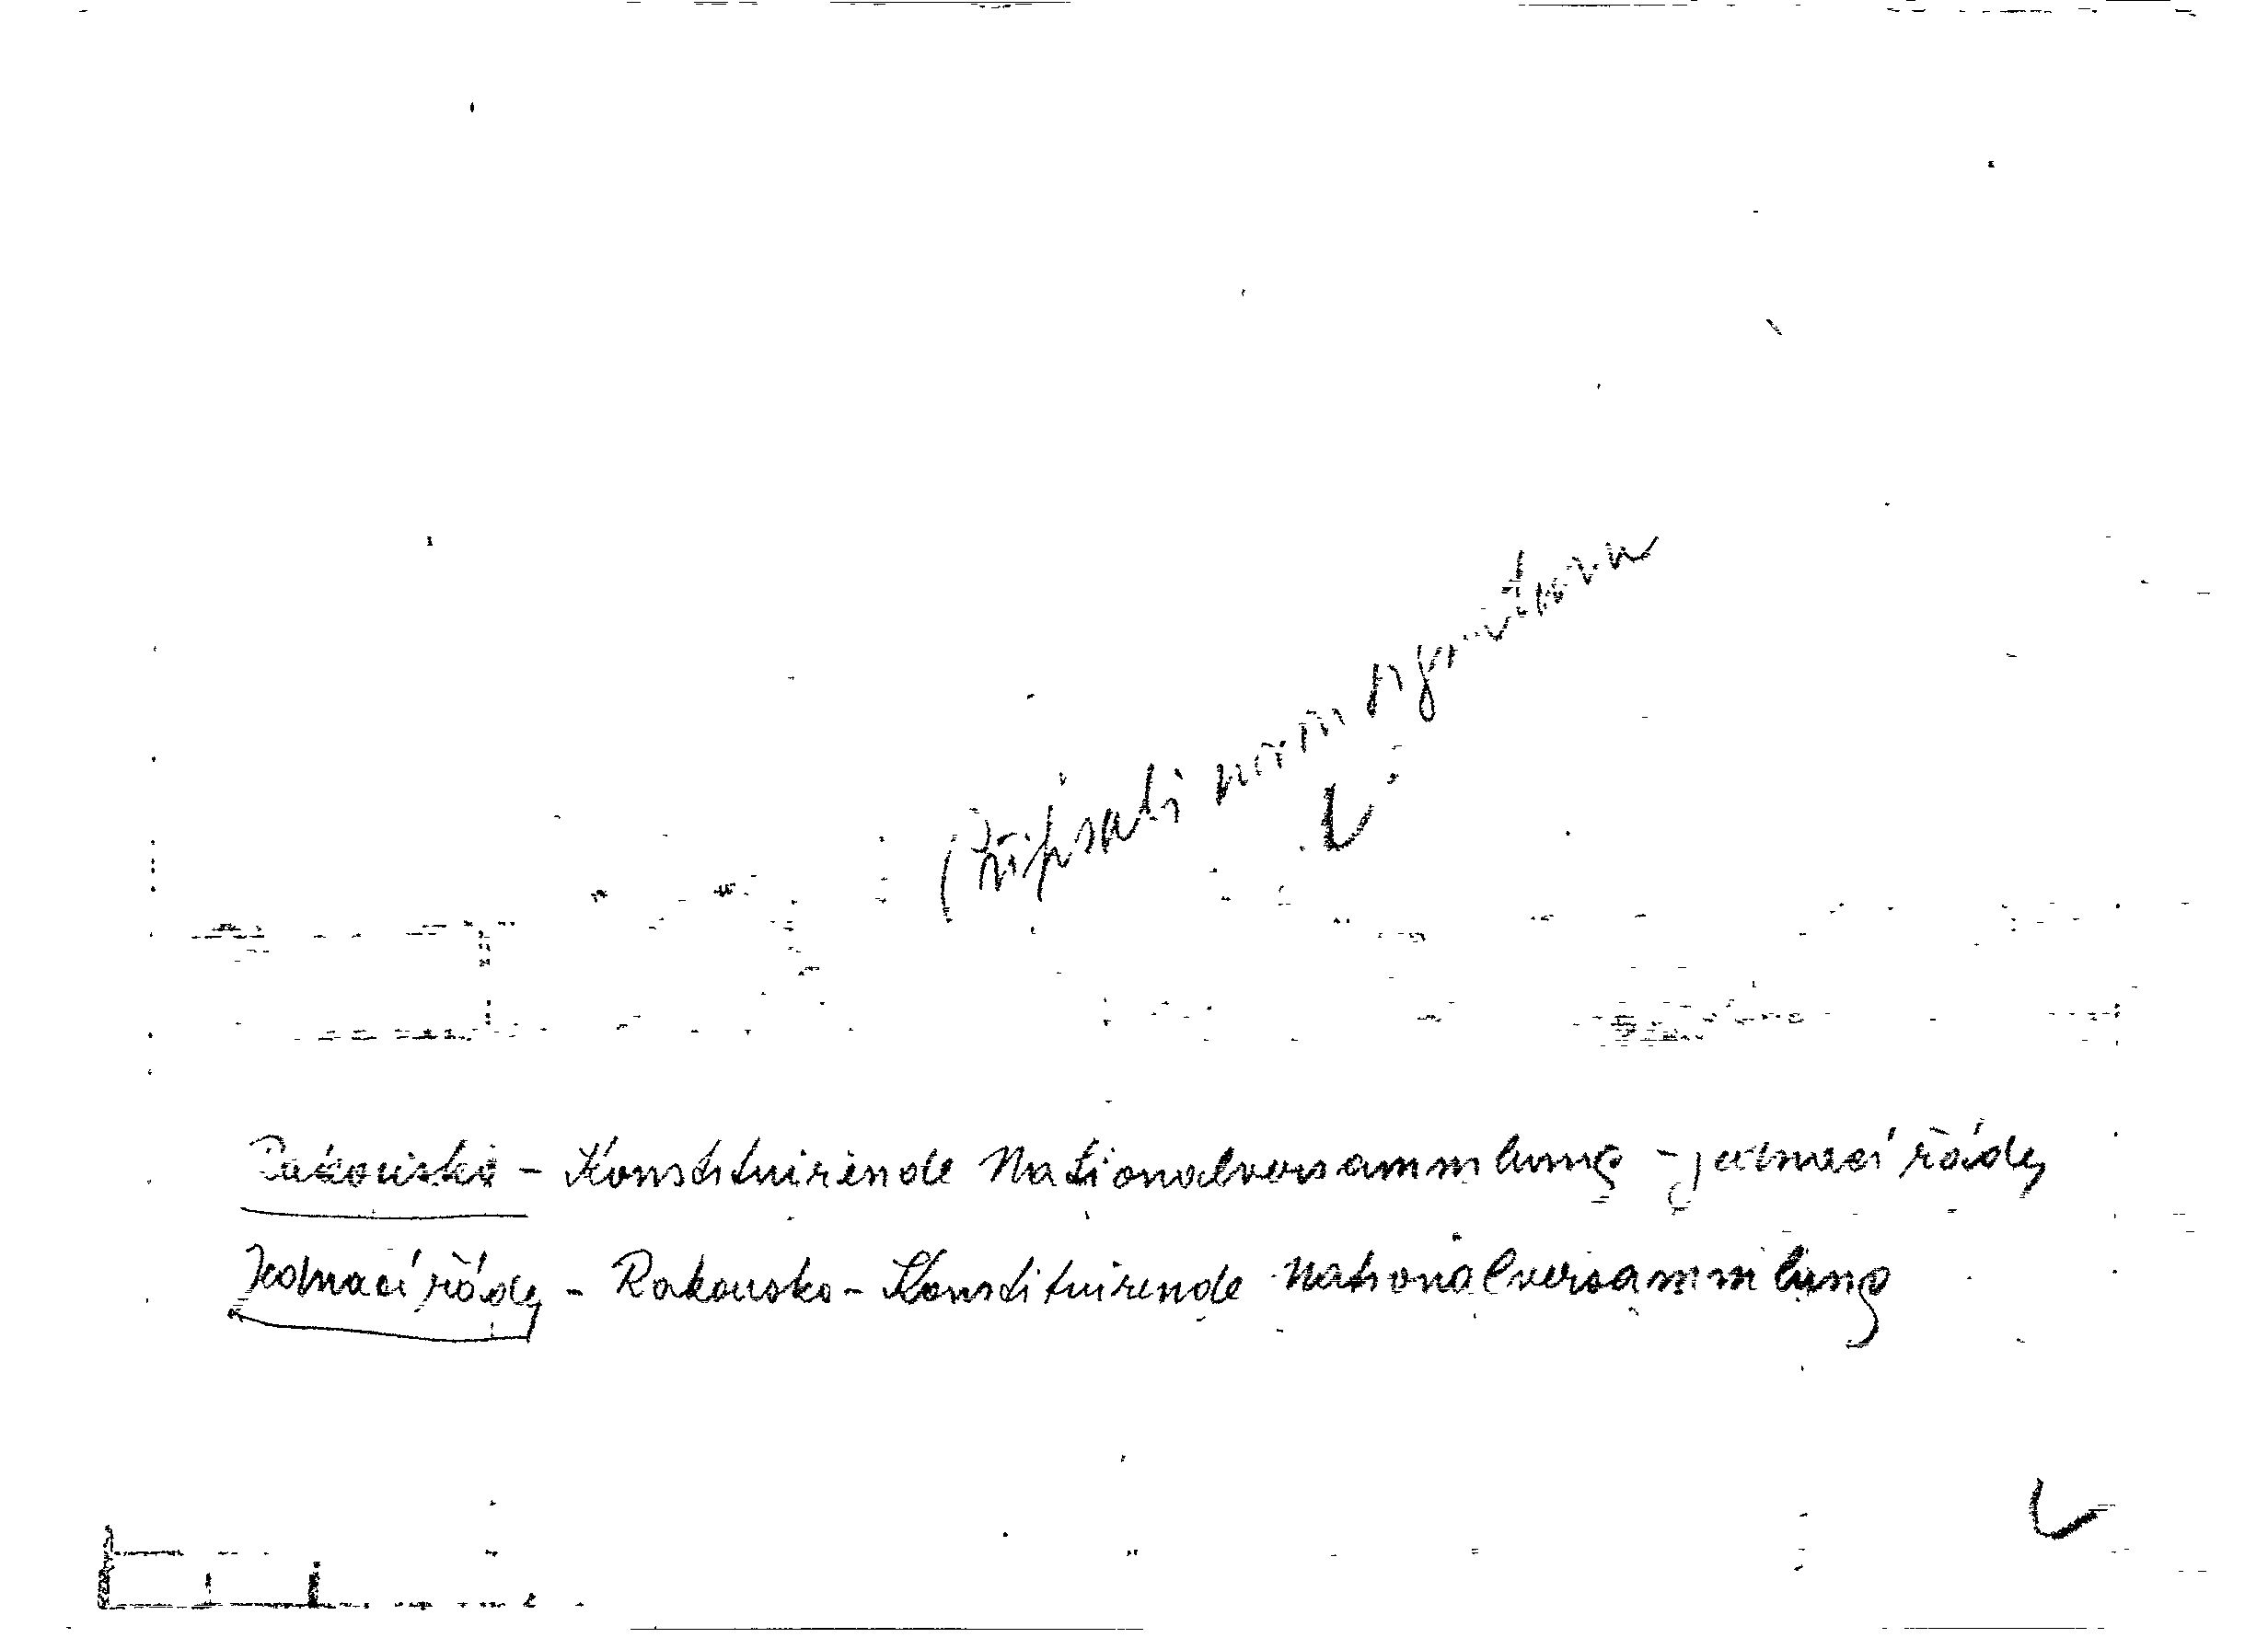 (Připsati novou signaturu
Rakousko - Konstituirende Nationalversammlung - jednací řády
Jednací řády - Rakousko - Konstituirende Nationalversammlung